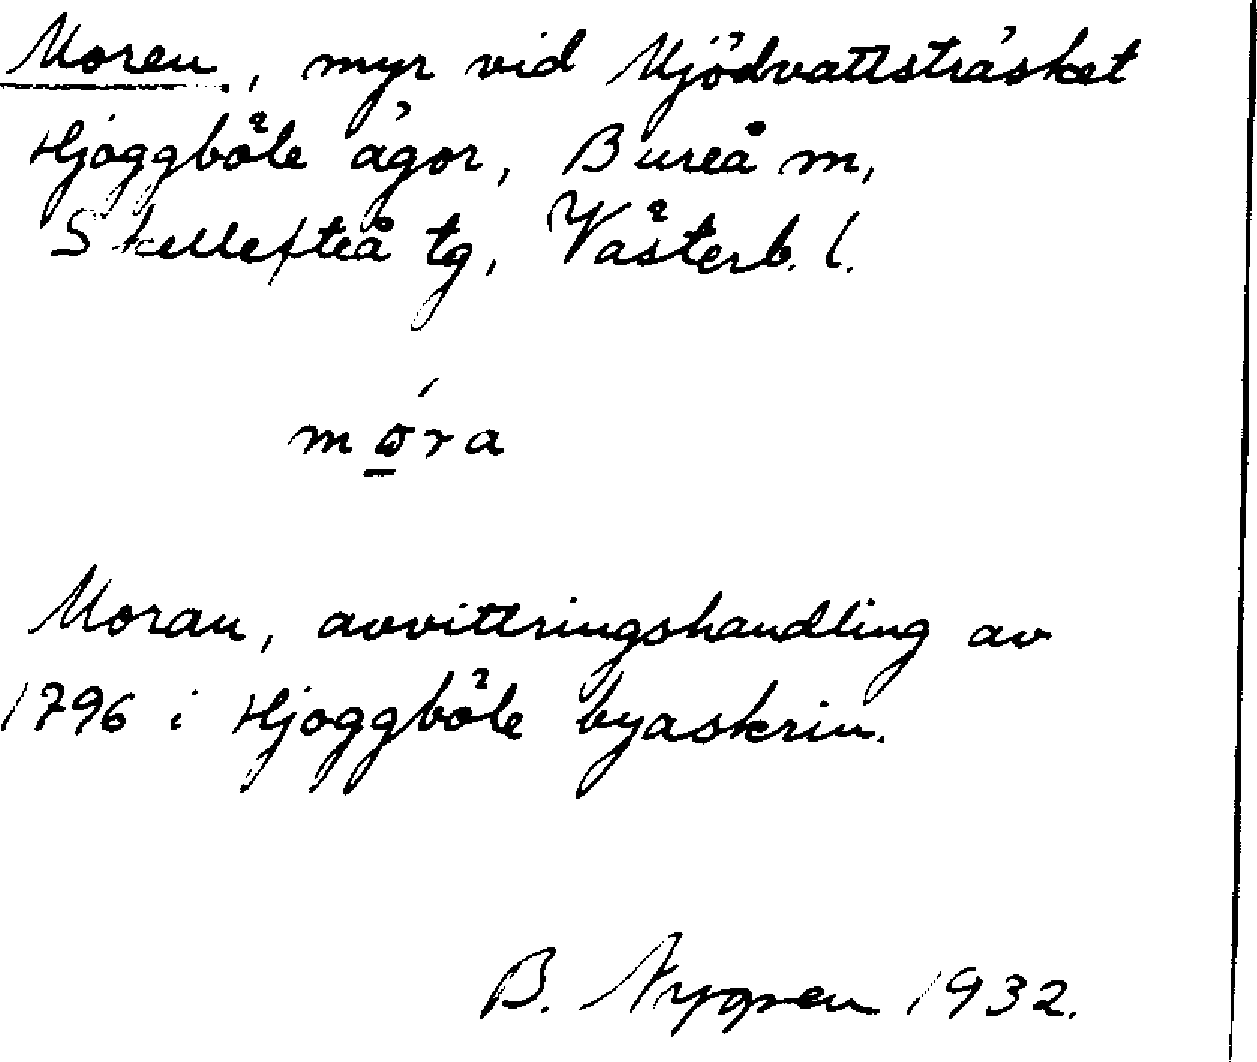 Moren, myr vid Mjödvattsträsket
Hjoggböle ägor, Bureå m,
Skellefteå tg, Västerb. l.
mo̲´ra
Moran, avvittringshandling av
1796 i Hjoggböle byaskrin.
B. Nygren 1932.